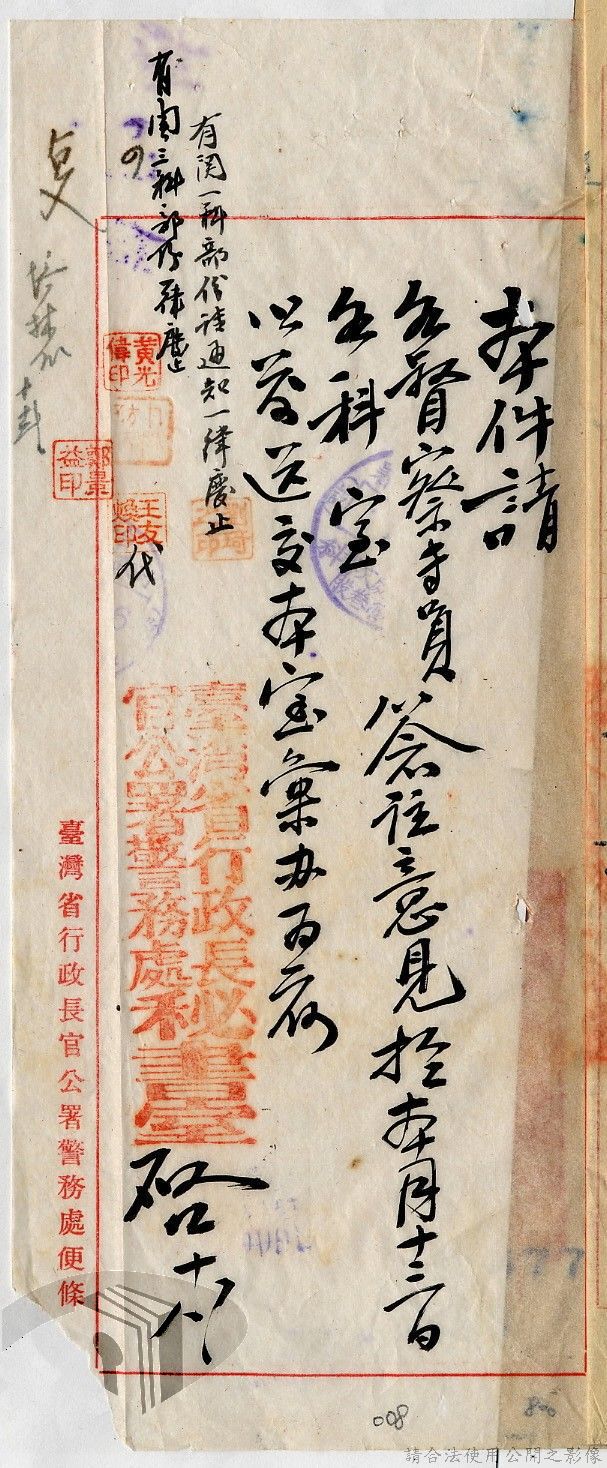 本件請
各督察專員
各科室
簽注意見於本月十三日
以前送交本室彙办為荷
臺灣省行政長
官公署警務處秘書室
啓十八
有関一科部份請通知一律廢止
有関三科部份
黃光偉印
王友煥印
代
郭景益印
臺灣省行政長官公署警務處便條
008
請合法使用公開之影像